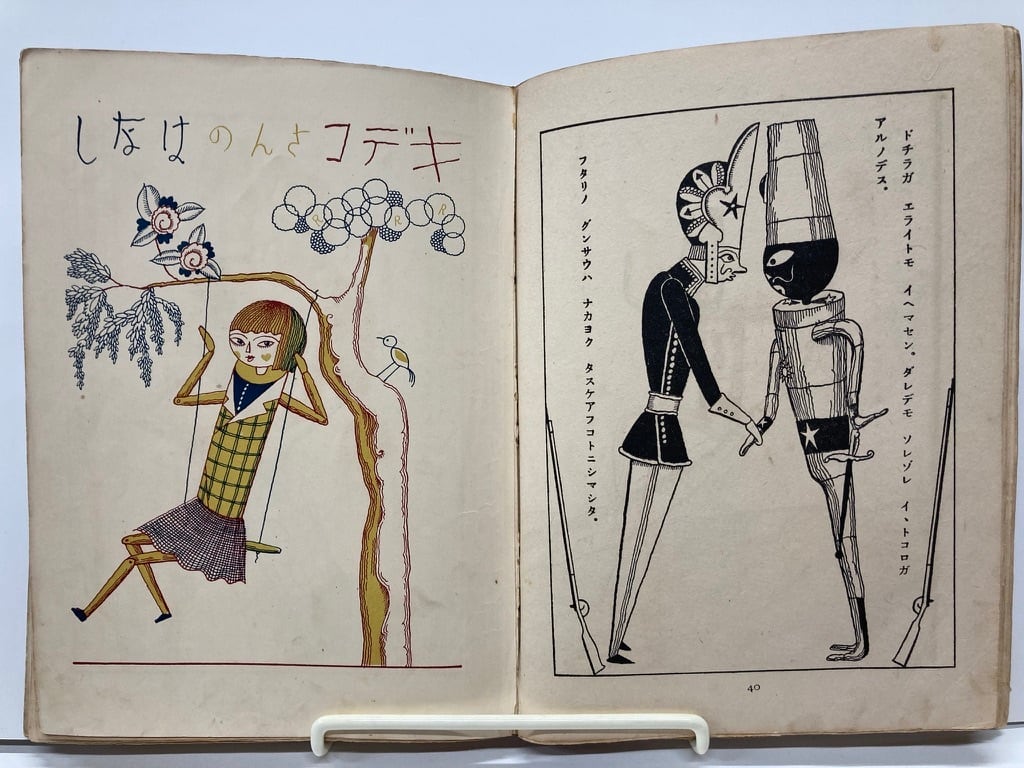 ドチラガ エライトモ イヘマセン。ダレデモ ソレゾレ イヽトコロガ
アルノデス。
フタリノ グンサウハ ナカヨク タスケアフコトニシマシタ。
40
キデコさんのはなし